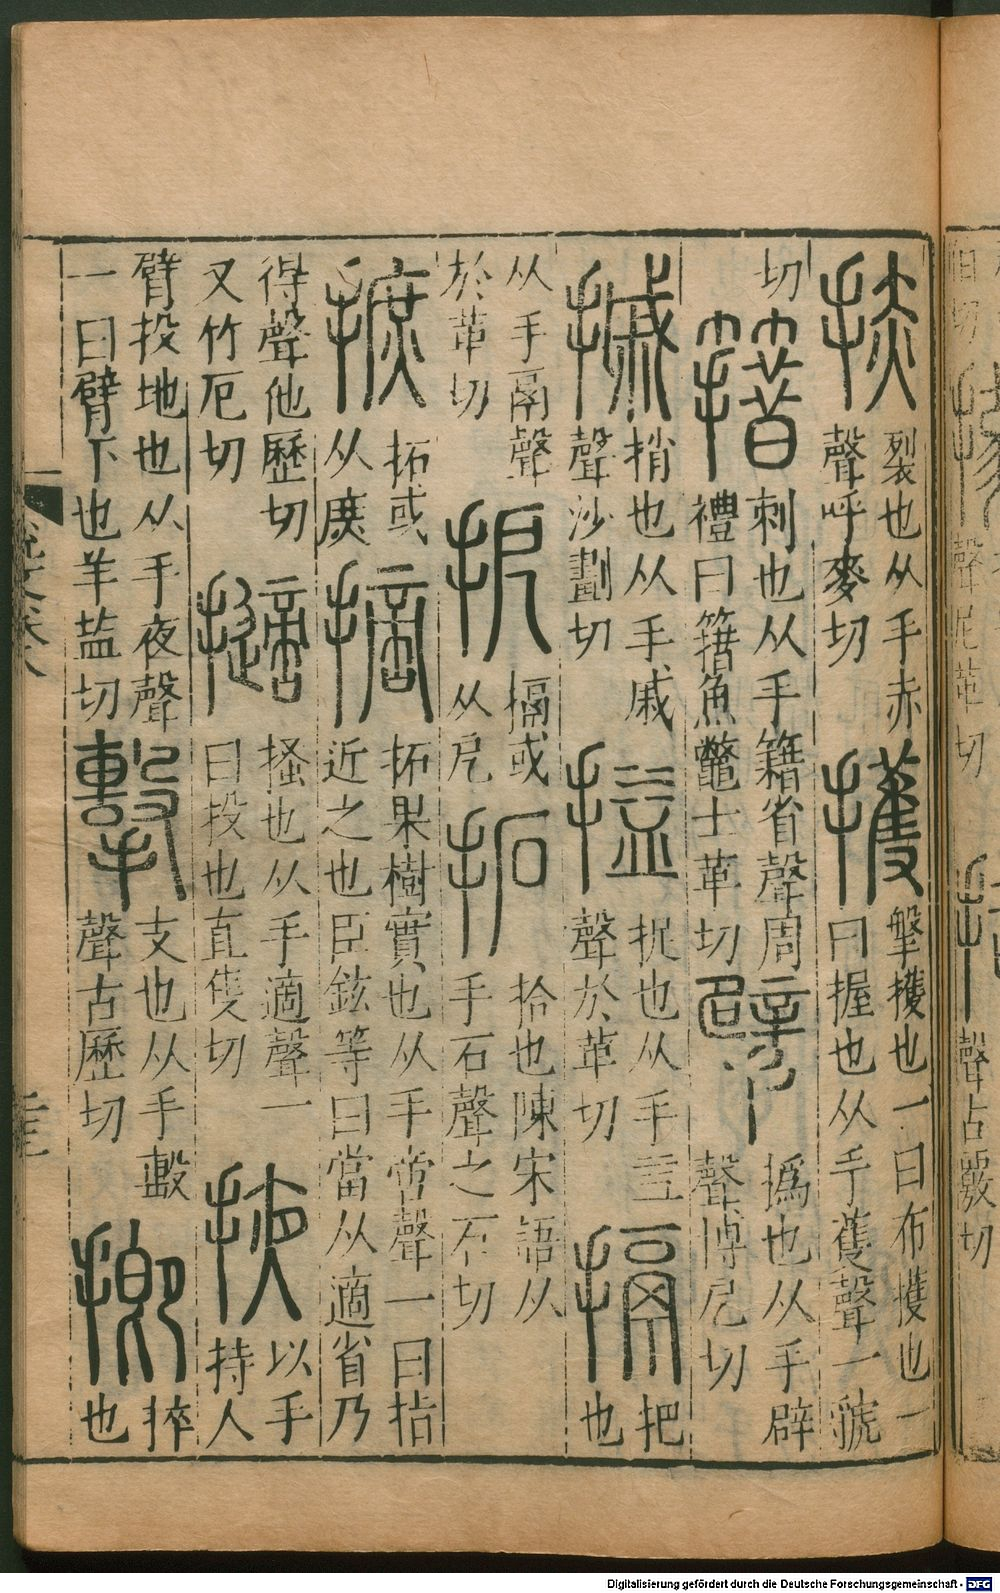 捇
裂也从手赤
聲呼麥切
擭
擊擭也一曰布擭也一
曰握也从手蒦聲一虢
切
簎
刺也从手籍省聲周
禮曰簎魚鼈士革切
擘
撝也从手辟
聲博戹切
摵
捎也从手戚
聲沙劃切
搤
捉也从手益
聲於革切
搹
把
也
从手鬲聲
於革切
㧖
搹或
从戹
拓
拾也陳宋語从
手石聲之石切
摭
拓或
从庶
摘
拓果樹實也从手啻聲一曰指
近之也臣鉉等曰當从適省乃
得聲他歷切
又竹厄切
擿
搔也从手適聲一
曰投也直隻切
掖
以手
持人
臂投地也从手夜聲
一曰臂下也羊益切
擊
支也从手毄
聲古歷切
揤
捽
也
Digitalisierung gefördert durch die Deutsche Forschungsgemeinschaft - DFG